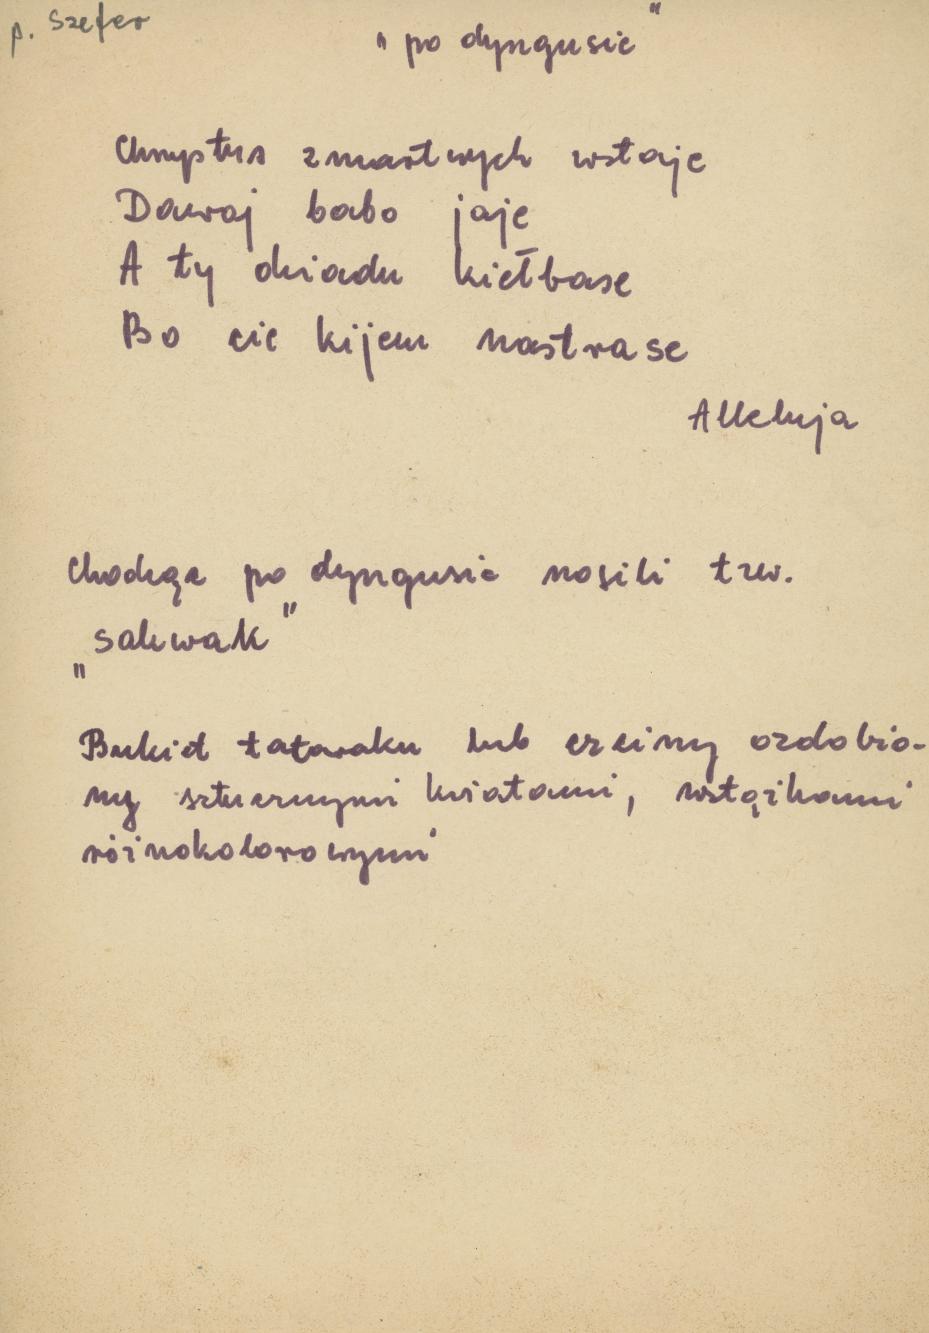 p. Szefer
"po dyngusie"
Chrystus zmartwych wstaje
Dawaj babo jaje
A ty dziadu kiełbase
Bo cie kijem nastrase
Alleluja
Chodząc po dyngusie nosili tzw.
"sakwak"
Bukiet tataraku lub trzciny ozdobio-
ny sztucznymi kwiatami, wstążkami
różnokolorowymi